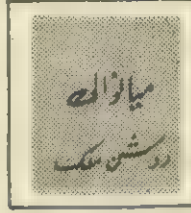 میانوالی
روشن